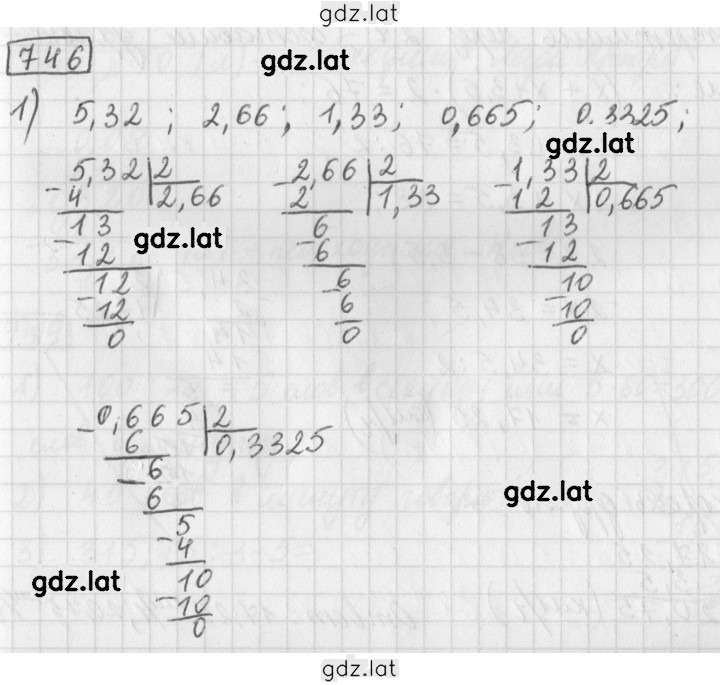 gdz.lat
746
gdz.lat
1) 5,32 ; 2,66 ; 1,33 ; 0,665 ; 0.3325 ;
gdz.lat
-5,32 | 2
4 | 2,66
-13
12
-12
12
0
-2,66 | 2
2 | 1,33
-6
6
-6
6
0
-1,33 | 2
12 | 0,665
-13
12
-10
10
0
gdz.lat
-0,665 | 2
6 | 0,3325
-6
6
-5
4
-10
10
0
gdz.lat
gdz.lat
gdz.lat